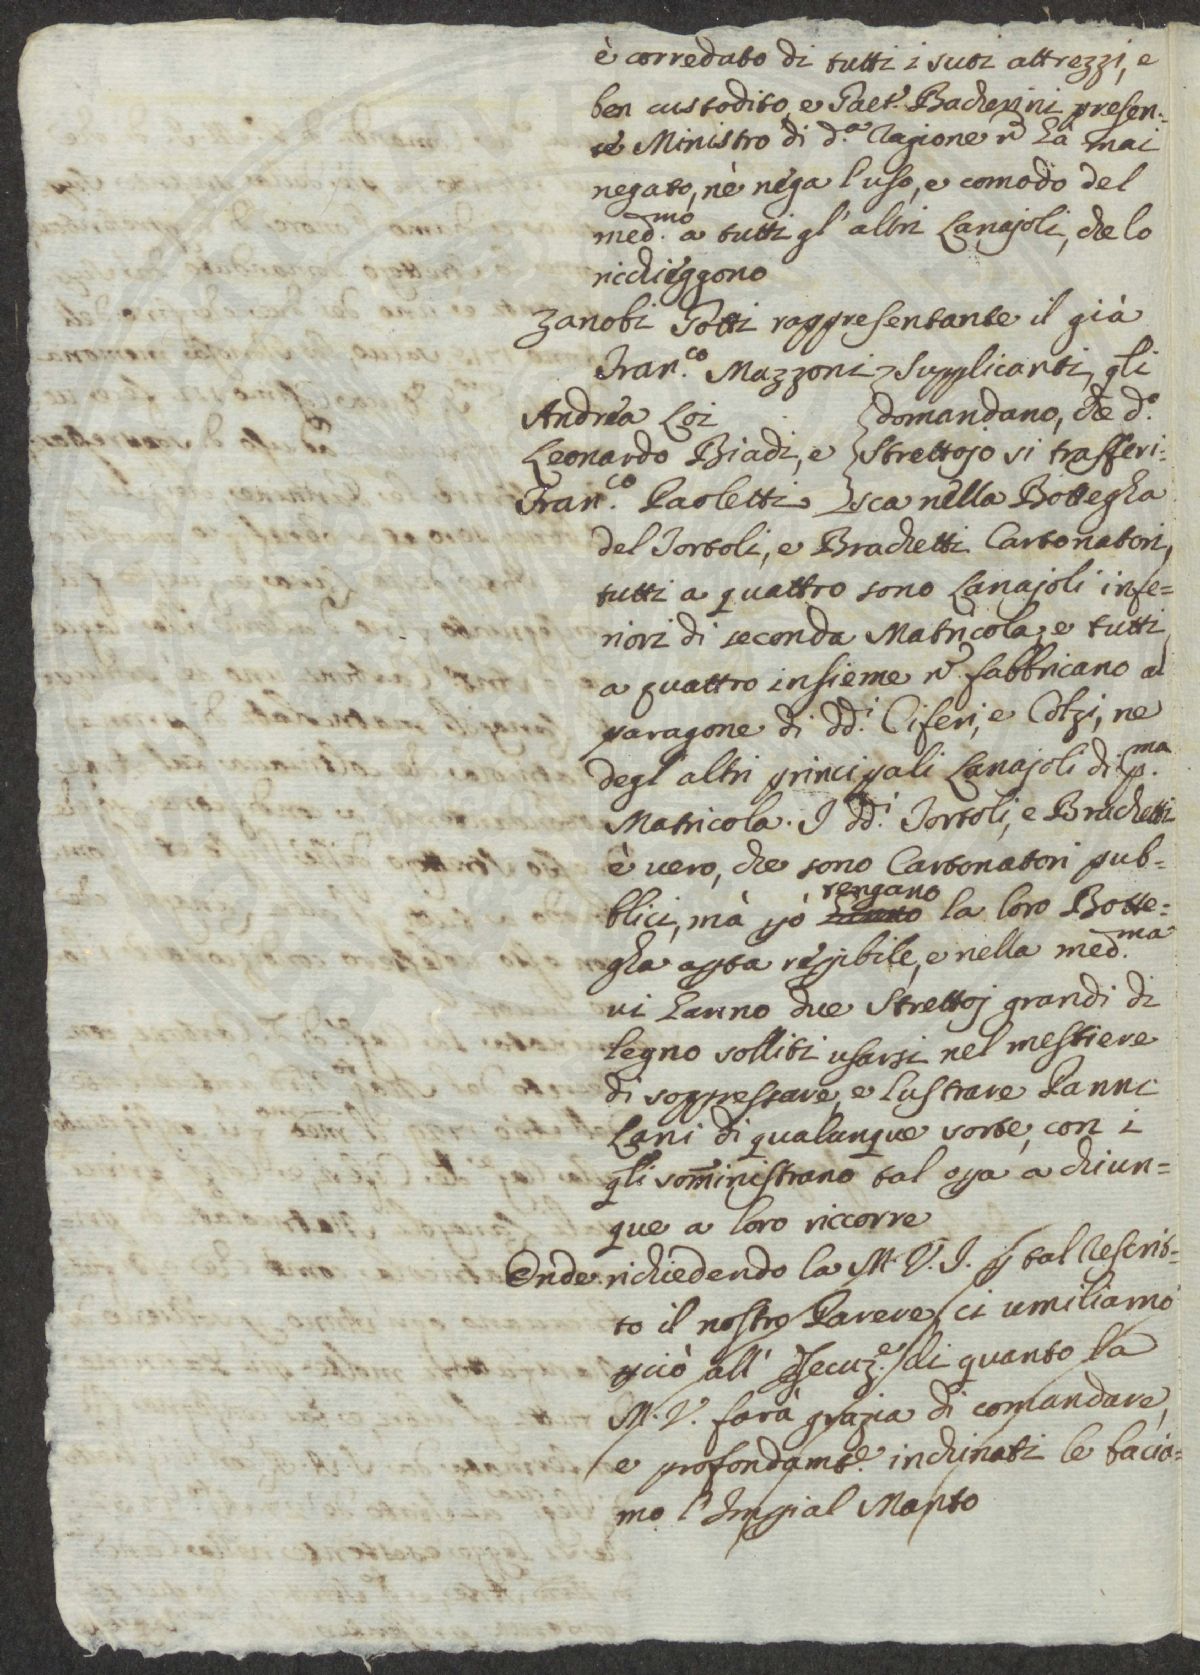 è corredato di tutti i suoi attrezzi, e
ben custodito, e Gaet.º Bacherini presen-
te Ministro di d.ª Ragione ñ hà mai
negato, nè niega l'uso, e comodo del
med.mo a tutti gl'altri Lanajoli, che lo
richieggono
Zanobi Potti rappresentante il già
Fran.co Mazzoni } Supplicanti, qli
Andrea Loi } domandano, che d.º
Leonardo Biadi, e } Strettojo si trasferi-
Fran.co Paoletti } sca nella Bottegha
del Tortoli, e Brachetti Cartonatori,
tutti a quattro sono Lanajoli infe=
riori di seconda Matricola, e tutti
a quattro insieme ñ fabbricano al
paragone di dd.i Ciferi, e Colzi, ne
degl'altri principali Lanajoli di p.ma
Matricola. I dd.i Tortoli, e Brachetti
è vero, che sono Cartonatori pub=
blici, mà pò tengano la loro Botte=
gha apta respibile, e nella med.ma
vi hanno due Strettoj grandi di
legno soliti usarsi nel mestiere
di soppressare, e lustrare Panni
Lani di qualunque sorte, con i
qli somministrano tal opa a chiun=
que a loro riccorre
Onde richiedendo la M.V.I. p tal Rescrit=
to il nostro Parere, ci umiliamo
pciò all'Esecuz.e di quanto la
M.V. farà grazia di comandare,
e profondamt.e inchinati le bacia=
mo l'Impial Manto